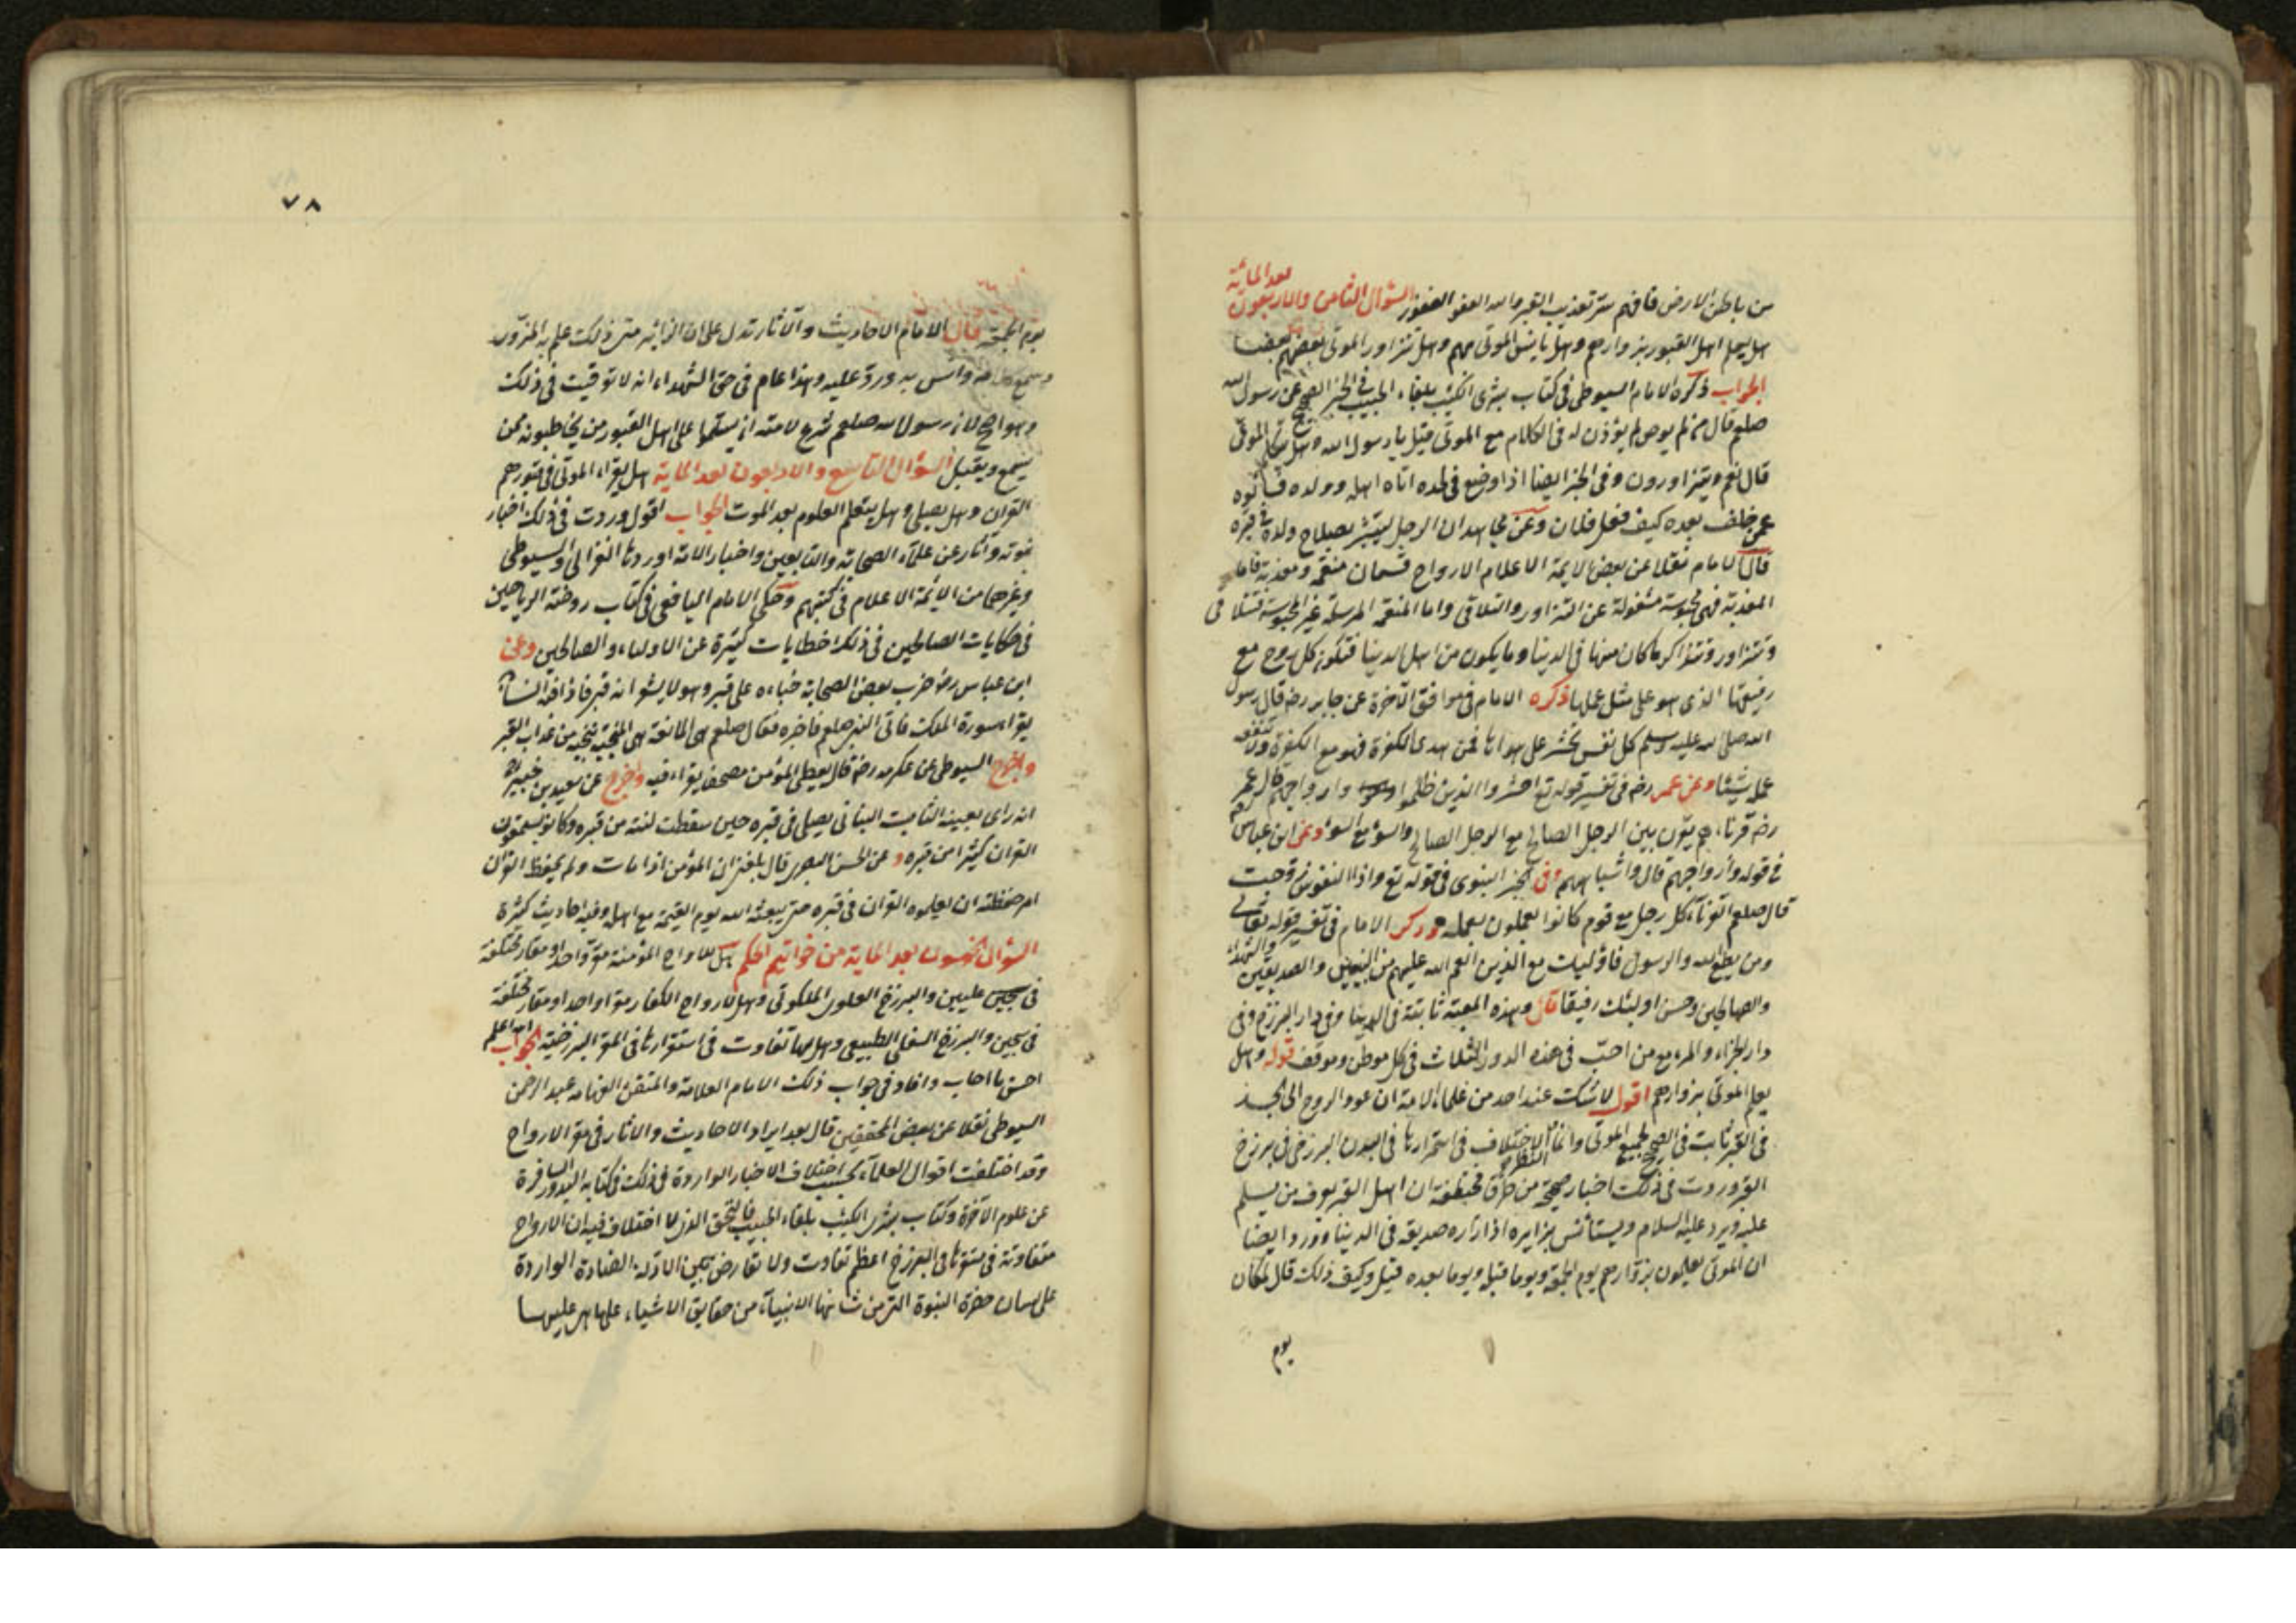 من باطن الارض فافهم ستر تعذيب القبر والله العفو الغفور السؤال الثامن والاربعون بعد المائة
هل يعلم اهل القبور بزوارهم وهل يأنس الموتى بهم وهل تتزاور الموتى بعضهم بعضا
الجواب ذكره الامام السيوطى فى كتاب بشرى الكئيب بلقاء الحبيب فى الخبر الصحيح عن رسول الله
صلعم قال من لم يوص لم يؤذن له فى الكلام مع الموتى قيل يا رسول الله وهل يتكلم الموتى
قال نعم ويتزاورون وفى الخبر ايضا اذا وضع فى لحده اتاه اهله وولده فسألوه
عمن خلف بعده كيف فعل فلان وعن مجاهد ان الرجل ليبشر بصلاح ولده فى قبره
قال الامام نقلا عن بعض الايمة الاعلام الارواح قسمان منعمة ومعذبة فاما
المعذبة فهى محبوسة مشغولة عن التزاور والتلاقى واما المنعمة المرسلة غير المحبوسة فتتلاقى
وتتزاور وتتذاكر ما كان منها فى الدنيا وما يكون من اهل الدنيا فتكون كل روح مع
رفيقها الذى هو على مثل عملها ذكره الامام فى موافق الآخرة عن جابر رضه قال رسول
الله صلى الله عليه وسلم كل نفس تحشر على هواها فمن هدى الكفرة فهو مع الكفرة ولا تنفعه
عمله شيئا وعن عمر رضه فى تفسير قوله تع احشروا الذين ظلموا وازواجهم قال عمر
رضه قرناءهم يقرن بين الرجل الصالح مع الرجل الصالح والسوء مع السوء وعن ابن عباس
فى قوله وأزواجهم قال واشباههم وفى الخبر النبوى فى قوله تع واذا النفوس زوجت
قال صلعم القرناء كل رجل مع قوم كانوا يعملون بعمله وذكر الامام فى تفسير قوله تعالى
ومن يطع الله والرسول فاؤليك مع الذين انعم الله عليهم من النبيين والصديقين والشهداء
والصالحين وحسن اوليئك رفيقا قال وهذه المعية ثابتة فى الدنيا وفى دار البرزخ وفى
دار الجزاء والمرء مع من احبّ فى هذه الدور الثلاث فى كل موطن وموقف قوله وهل
يعلم الموتى بزوارهم اقول لا شك عند احد من علماء الامة ان عود الروح الى الجسد
فى القبر ثابت فى الصحيح لجميع الموتى وانما الاختلاف فى استمرارها فى البدن البرزخى فى برزخ
القبر وردت فى ذلك اخبار صحيحة من طرق مختلفة ان اهل القبر يعرف من يسلم
عليه ويرد عليه السلام ويستأنس بزايره اذا زاره صديقه فى الدنيا وورد ايضا
ان الموتى يعلمون بزوارهم يوم الجمعة ويوما قبله ويوما بعده قيل وكيف ذلك قال لمكان
يوم
٧٨
يوم الجمعة قال الامام الاحاديث والآثار تدل على ان الزاير متى ذلك علم به المزور
وسمع كلامه وانس به ورد عليه وهذا عام فى حق الشهداء انه لا توقيت فى ذلك
وهو اصح لان رسول الله صلعم شرع لامته ان يسلموا على اهل القبور من يخاطبونه ممن
يسمع ويعقل السؤال التاسع والاربعون بعد الماية هل يقراء الموتى فى قبورهم
القران وهل يصلى وهل يتعلم العلوم بعد الموت الجواب اقول وردت فى ذلك اخبار
نبوته وآثار عن علماء الصحابة والتابعين واخبار الامة اوردها الغزالى والسيوطى
وغيرهما من الائمة الاعلام فى كتبهم وحكى الامام اليافعى فى كتاب روضة الرياحين
فى حكايات الصالحين فى ذلك خطايات كثيرة عن الاولياء والصالحين وعن
ابن عباس رضه ضرب بعض الصحابة خباءه على قبر وهو لا يشعر انه قبر فاذا فيه انسان
يقرا سورة الملك فاتى النبى صلعم فاخبره فقال صلعم هى المانعة هى المنجية تنجيه من عذاب القبر
واخرج السيوطى عن عكرمه رضه قال يعطى المؤمن مصحفا يقراء فيه واخرج عن سعيد بن جبير
انه راى بعينه الثابت البنانى يصلى فى قبره حين سقطت لبنة من قبره وكانوا يسمعون
القران كثيرا من قبره وعن الحسن البصرى قال بلغنى ان المؤمن اذا مات ولم يحفظ القران
امر حفظته ان يعلموه القران فى قبره حتى يبعثه الله يوم القيمة مع اهله وفيه احاديث كثيرة
السؤال الخمسون بعد الماية من خواتيم الحكم هل للارواح المؤمنة مقر واحد او مقار مختلفة
فى عليين والبرزخ العلوى الملكوتى وهل لارواح الكفار مقر واحد او مقار مختلفة
فى سجين والبرزخ السفلى الطبيعى وهل لها تفاوت فى استقرارها فى المقر البرزخية الجواب اعلم
احسن ما اجاب وافاد فى جواب ذلك الامام العلامة والمتقن الفهامه عبد الرحمن
السيوطى نقلا عن بعض المحققين قال بعد ايراد الاحاديث والاثار فى مقر الارواح
وقد اختلفت اقوال العلماء بحسب اختلاف الاخبار الواردة فى ذلك فى كتابه البدور السافرة
عن علوم الآخرة وكتاب بشرى الكئيب بلقاء الحبيب فالتحق الذى لا اختلاف فيه ان الارواح
متفاوتة فى مقرها فى البرزخ اعظم تفاوت ولا تعارض بين الادلة الصادة الواردة
على لسان حضرة النبوة التى من شانها الانبياء من حقايق الاشياء على ما هى عليها